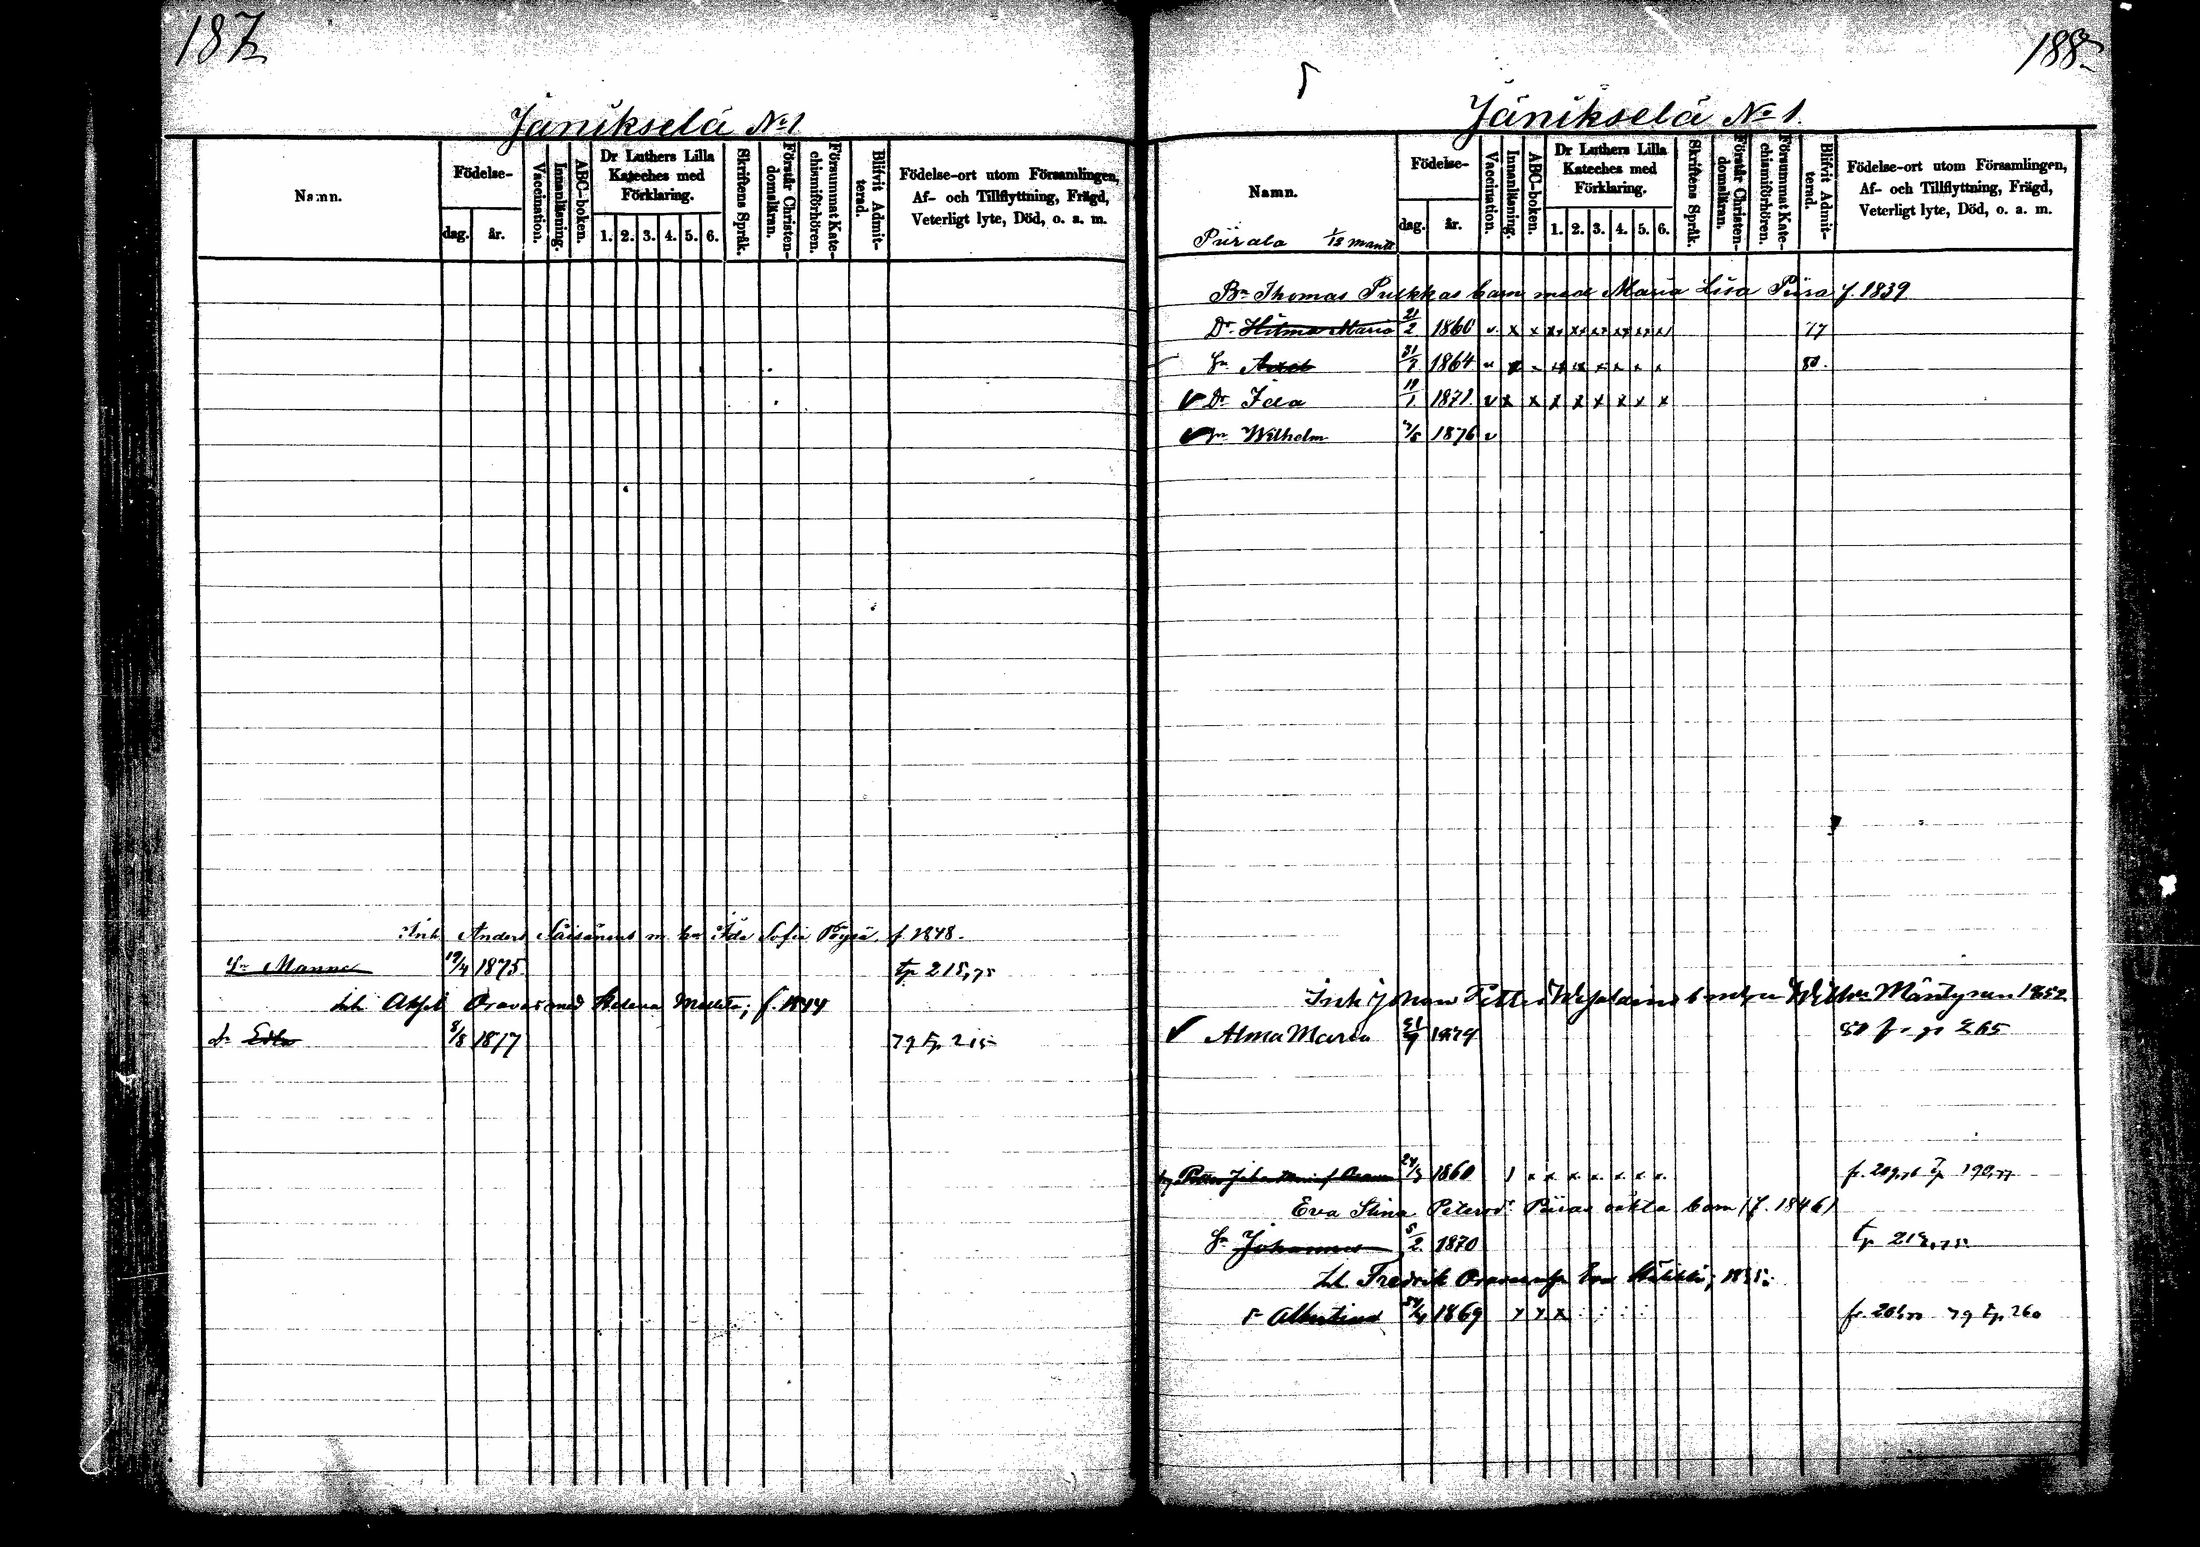 187
Jänikselä No 1
Namn.
Födelse-
dag.
år.
Vaccination.
Innanläsning.
ABC-boken.
Dr Luthers Lilla
Kateches med
Förklaring.
1. 2. 3. 4. 5. 6.
Skriftens Språk.
Förstår Christen-
domsläran.
Försummat Kate-
chismiförhören.
Blifvit Admit-
terad.
Födelse-ort utom Församlingen,
Af- och Tillflyttning, Frägd,
Veterligt lyte, Död, o. a. m.
Inh Anders Säisänens m Ida Sofia f 1848.
Sn Manne 19/4 1875. tp 215,75
Inh Oravas med Helena f. 1844
Dr Edla 8/8 1877 79 tp 215
188
Jänikselä No 1.
Namn.
Piirala 1/13 mantl
Födelse-
dag.
år.
Vaccination.
Innanläsning.
ABC-boken.
Dr Luthers Lilla
Kateches med
Förklaring.
1. 2. 3. 4. 5. 6.
Skriftens Språk.
Förstår Christen-
domsläran.
Försummat Kate-
chismiförhören.
Blifvit Admit-
terad.
Födelse-ort utom Församlingen,
Af- och Tillflyttning, Frägd,
Veterligt lyte, Död, o. a. m.
Bn Thomas Pulkkas barn med Maria Lisa Piira f. 1839
Dr Hilma Maria 21/2 1860 v x x xx xx xx xx xx xx 77
Sn Axel 1864 80.
v Dr Ida 19/1 1871. v x x x x x x x x
v Sn Wilhelm 1876 v
Inh Johan Petter Mäntynen 1852
v Alma Maria 1879 80 fr p 265
Petter Johan 24/3 1860 1 x x x x x x x
Eva Stina Petersdr Piiras oäkta barn (f. 1846)
Sn Johannes 5/2 1870
Fredrik Eva
Albertina 1869 79 tp 260